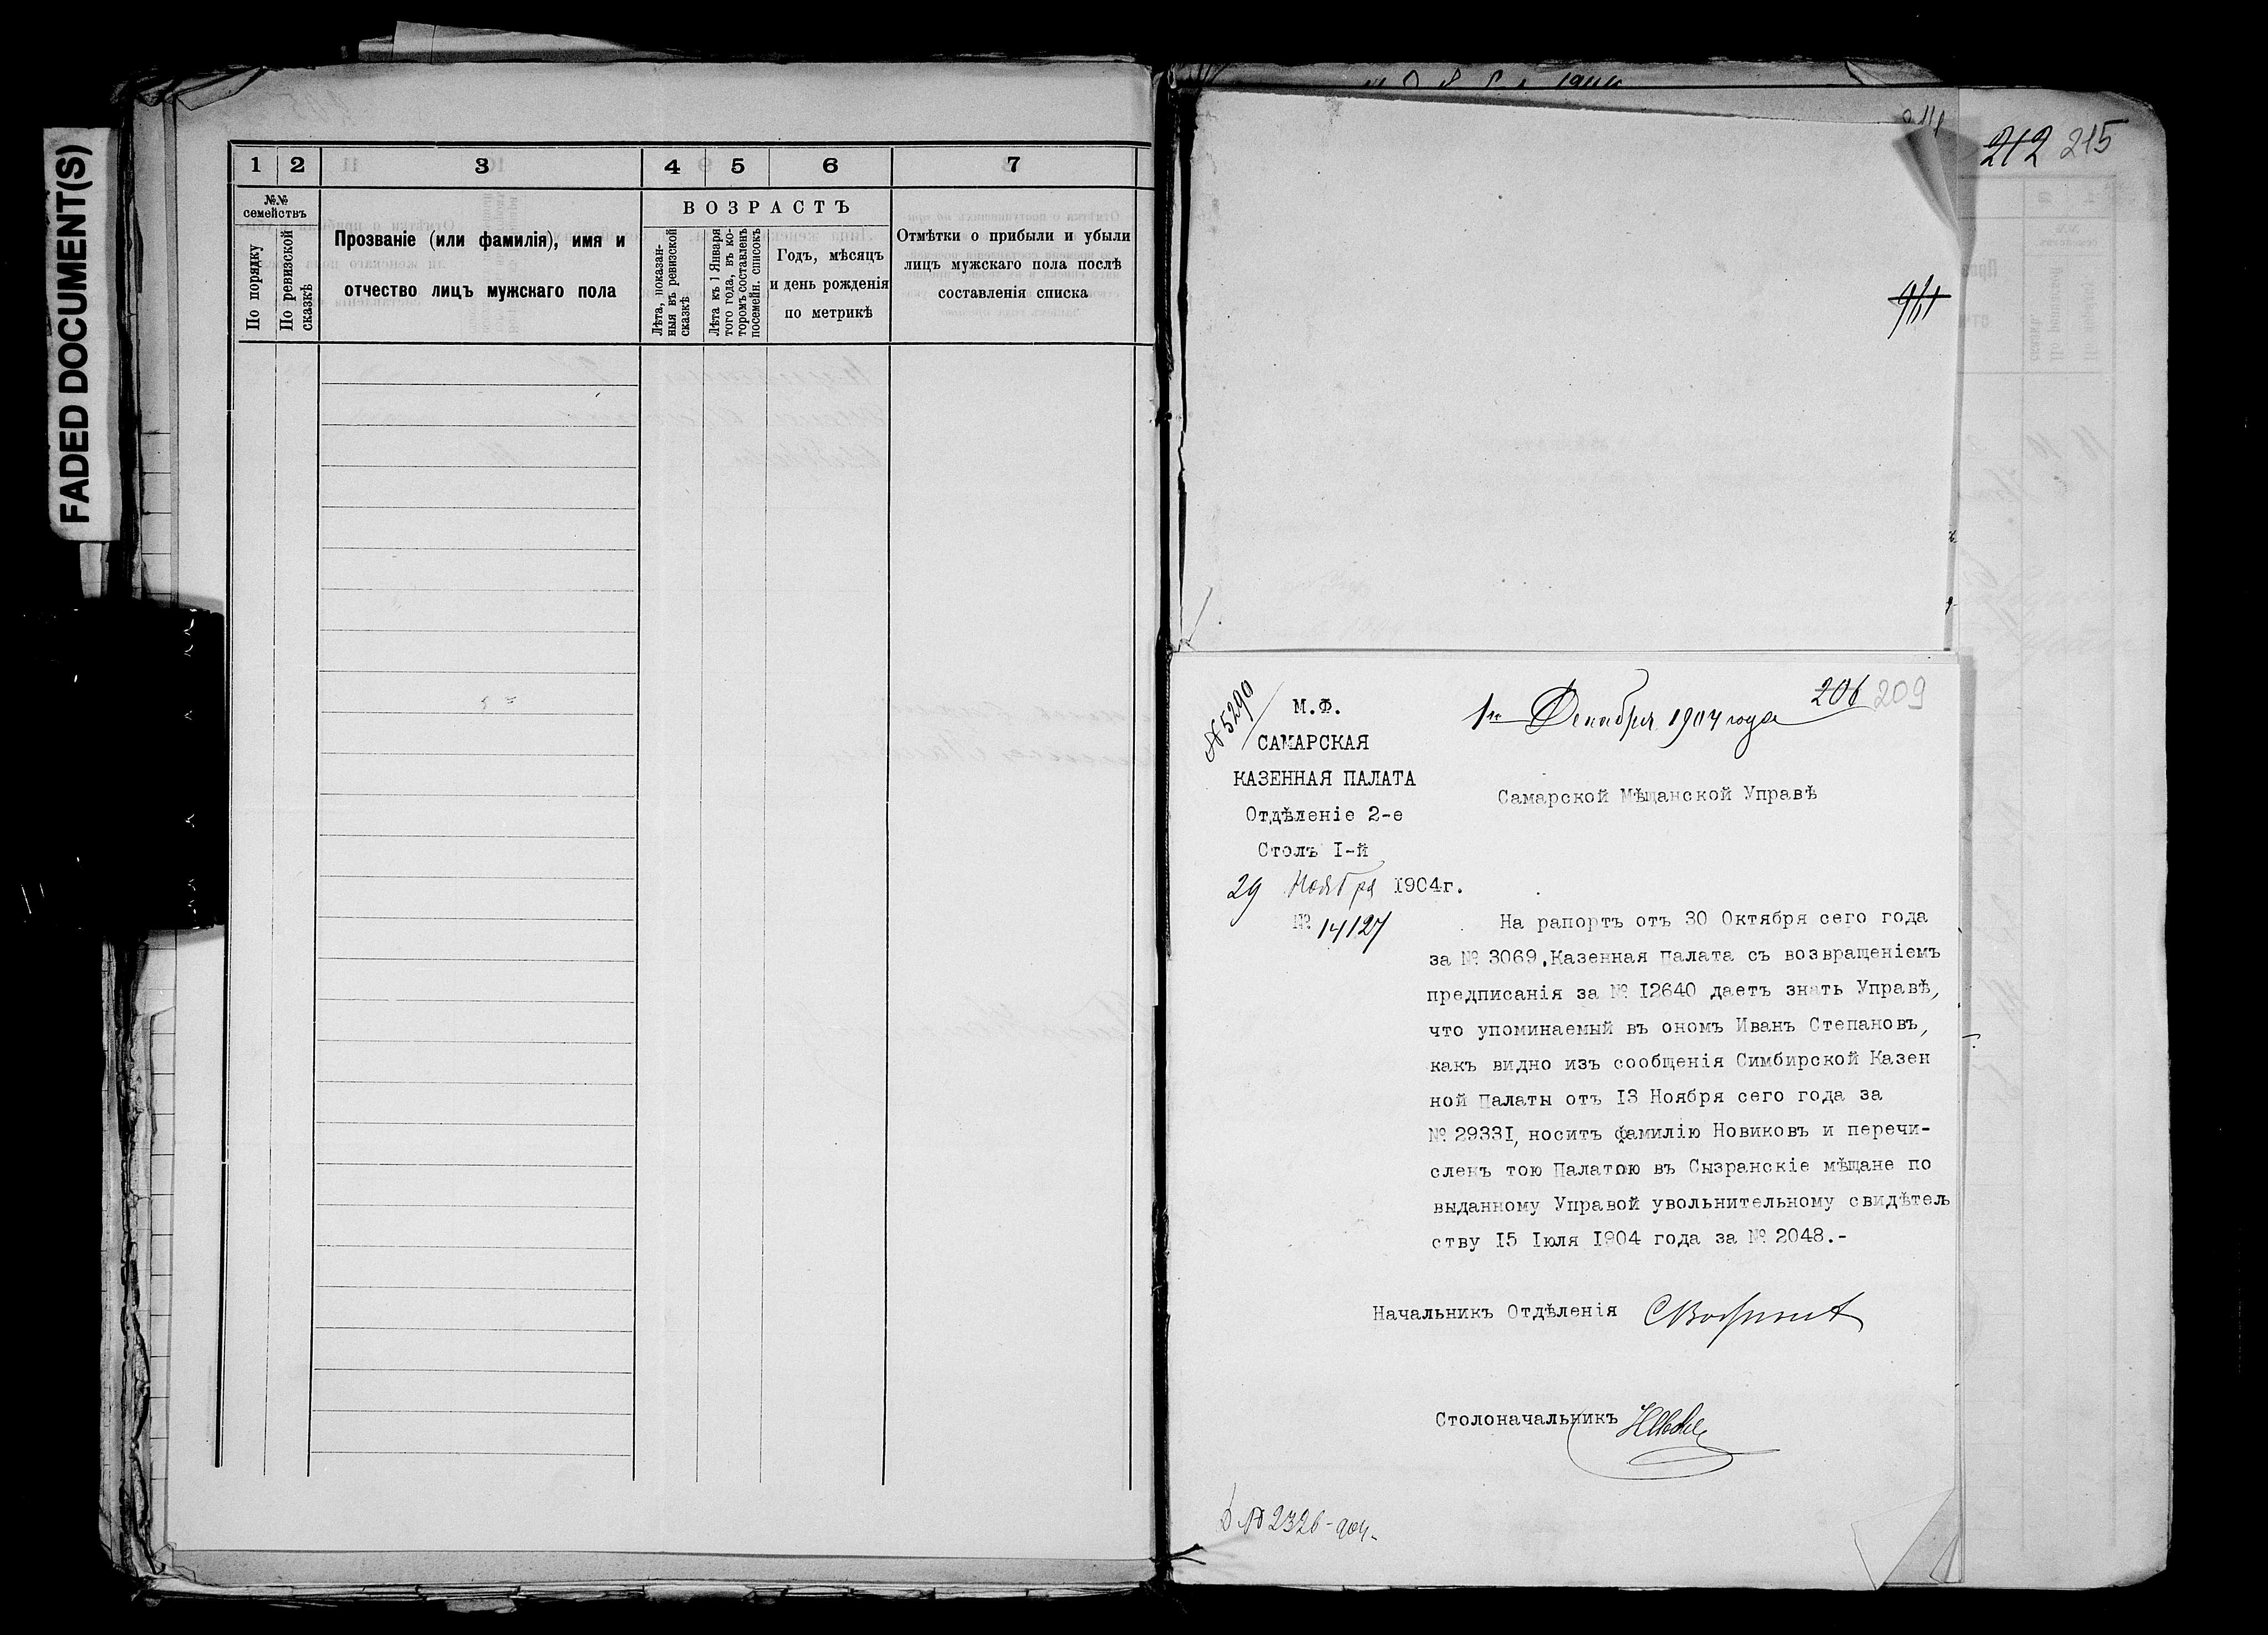 FADED DOCUMENT(S)
1 2 3 4 5 6 7
№№ семействъ
По порядку
По ревизской сказкѣ
Прозваніе (или фамилія), имя и
отчество лицъ мужскаго пола
ВОЗРАСТЪ
Лѣта, показан-
ныя въ ревизской
сказкѣ
Лѣта къ 1 Января
того года, въ ко-
торомъ составленъ
посемейн. списокъ
Годъ, мѣсяцъ
и день рожденія
по метрикѣ
Отмѣтки о прибыли и убыли
лицъ мужскаго пола послѣ
составленія списка
212 215
206 209
№ 5290
1го Декабря 1904 года
М.Ф.
САМАРСКАЯ
КАЗЕННАЯ ПАЛАТА
Отдѣленіе 2-е
Столъ I-й
29 Ноября 1904г.
№ 14127
Самарской Мѣщанской Управѣ
На рапортъ отъ 30 Октября сего года
за № 3069, Казенная Палата съ возвращеніемъ
предписанія за № I2640 даетъ знать Управѣ,
что упоминаемый въ ономъ Иванъ Степановъ,
какъ видно изъ сообщенія Симбирской Казен
ной Палаты отъ I3 Ноября сего года за
№ 2933I, носитъ фамилію Новиковъ и перечи-
сленъ тою Палатою въ Сызранскіе мѣщане по
выданному Управой увольнительному свидѣтель
ству I5 Іюля I904 года за № 2048.-
Начальникъ Отдѣленія
Столоначальникъ
№ 2326-904-